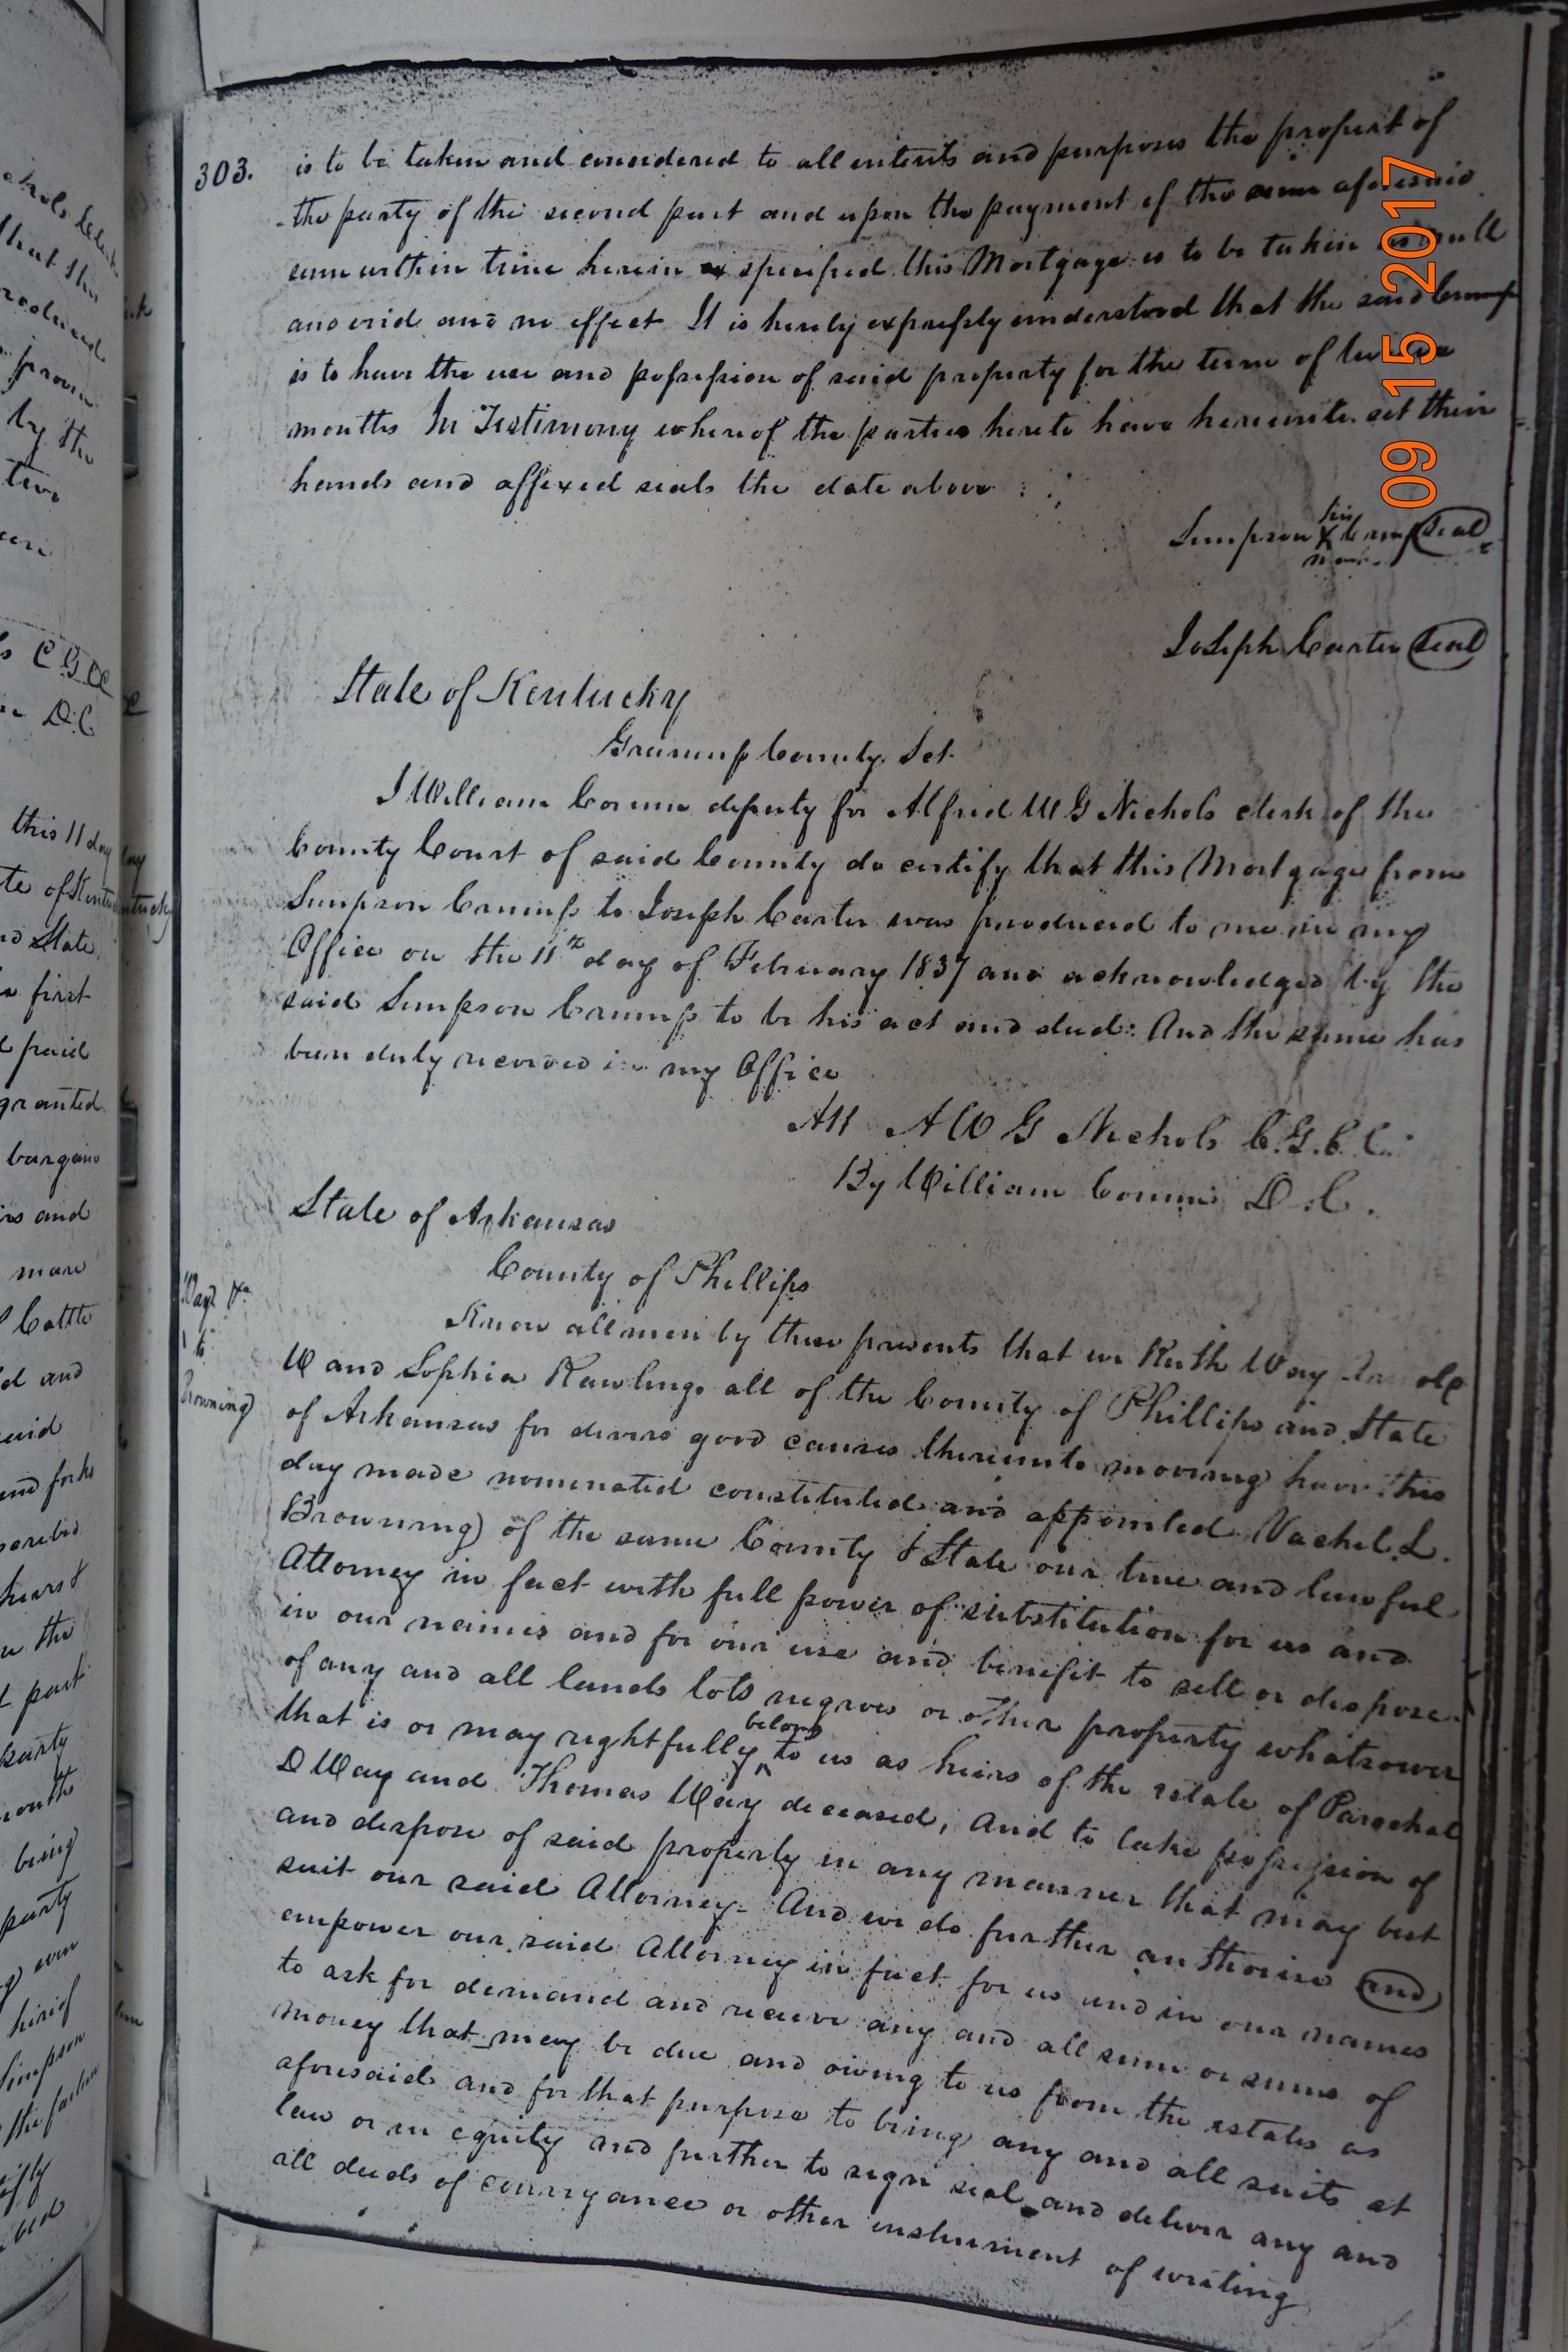 303. is to be taken and considered to all intents and purposes the propert of
the party of the second part and upon the payment of the sum aforesaid
sum within time herein specified this Mortgage is to be taken as null
and void and no effect It is hereby expressly understood that the said Crump
is to have the use and possession of said property for the term of
months In Testimony whereof the parties hereto have hereunto set their
hands and affixed seals the date above
Simpson his X mark Crump Seal
Joseph Carter Seal
State of Kentucky
Greenup County Sct
I William Corum deputy for Alfred W G Nichols clerk of the
County Court of said County do certify that this Mortgage from
Simpson Crump to Joseph Carter was produced to me in my
Office on the 11th day of February 1837 and acknowledged by the
said Simpson Crump to be his act and deed: And the same has
been duly recorded in my Office
Att A W G Nichols C.G.C.C.
By William Corum D.C.
State of Arkansas
County of Phillips
Way &c
to
Browning
Know all men by these presents that we Ruth Way
W and Sophia Rawlings all of the County of Phillips and State
of Arkansas for divers good causes thereunto mooving have this
day made nominated constituted and appointed Vachel L.
Browning of the same County & State our true and lawful
Attorney in fact with full power of substitution for us and
in our names and for our use and benefit to sell or dispose
of any and all lands lots negroes or other property whatsoever
that is or may rightfully belong to us as heirs of the estate of Paschal
D Way and Thomas Way deceased, And to take possession of
and dispose of said property in any manner that may best
suit our said Attorney - And we do further authorise and
empower our said Attorney in fact for us and in our names
to ask for demand and receive any and all sum or sums of
money that may be due and owing to us from the estates as
aforesaid and for that purpose to bring any and all suits at
law or in equity and further to sign seal and deliver any and
all deeds of conveyance or other instrument of writing
09 15 2017